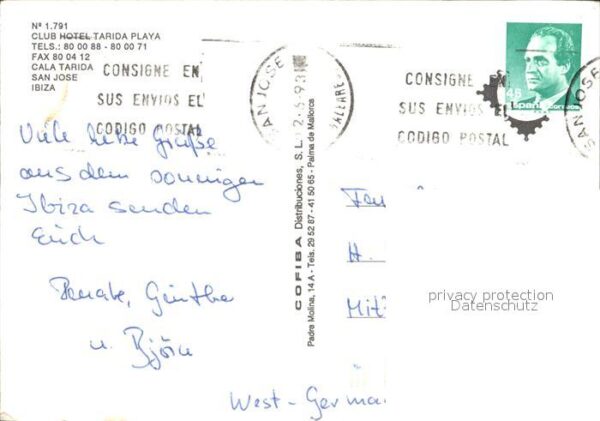 Nº 1.791
CLUB HOTEL TARIDA PLAYA
TELS.: 80 00 88 - 80 00 71
FAX 80 04 12
CALA TARIDA
SAN JOSE
IBIZA
CONSIGNE EN
SUS ENVIOS EL
CODIGO POSTAL
SAN JOSE
BALEARES
CONSIGNE EN
SUS ENVIOS EL
CODIGO POSTAL
SAN JOSE
España Correos
Viele liebe Grüße
aus dem sonnigen
Ibiza senden
Euch
Renate, Günther
u. Björn
COFIBA Distribuciones, S.L.
Padre Molina, 14 A - Tels. 29 52 87 - 41 50 65 - Palma de Mallorca
Fam
H.
Mit
West-Germa
privacy protection
Datenschutz